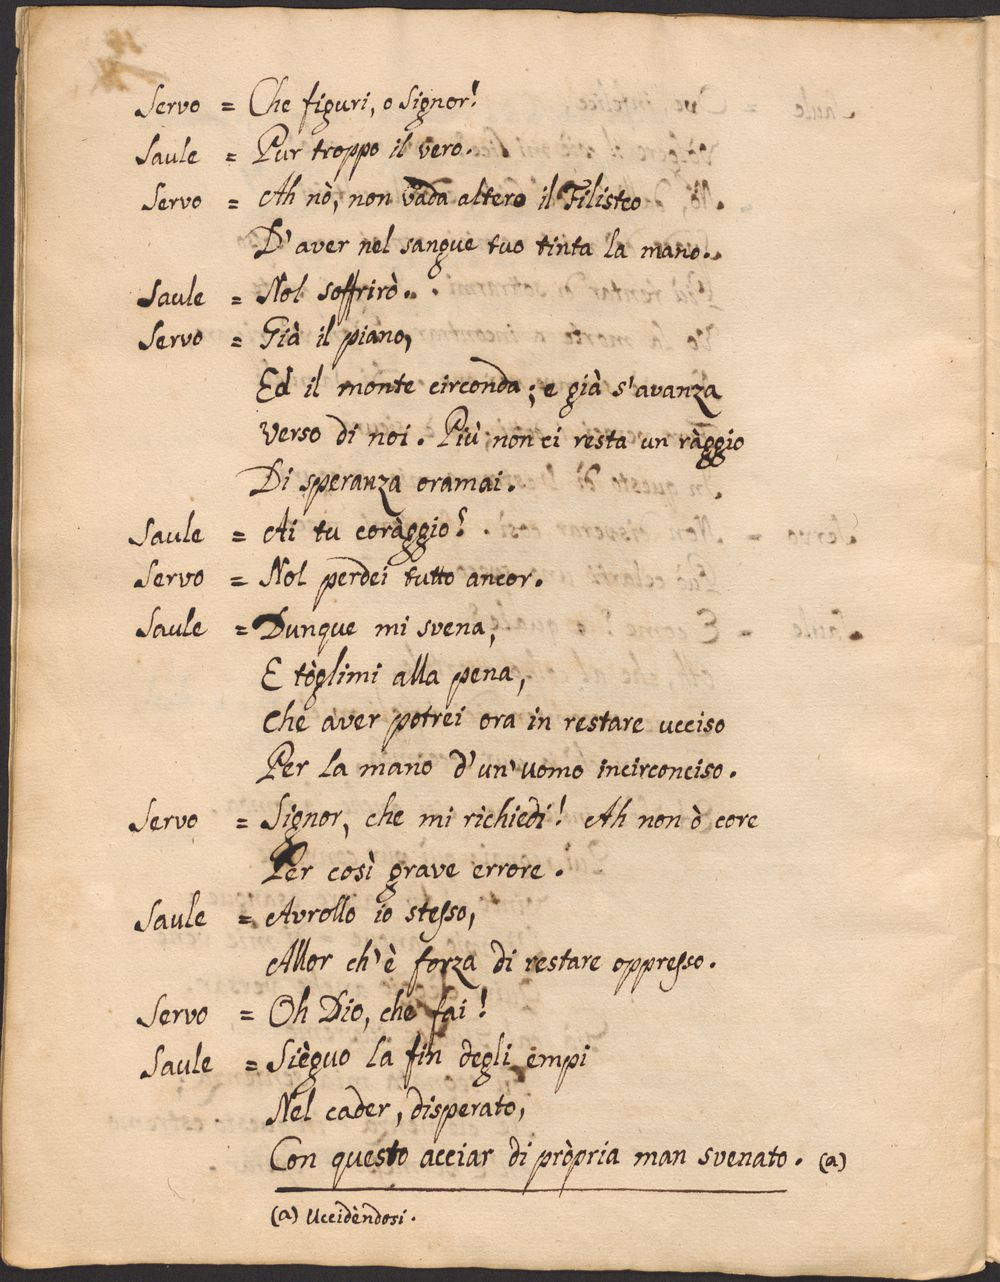 Servo = Che figuri, o Signor!
Saule = Pur troppo il vero.
Servo = Ah nò, non vada altero il Filisteo
D'aver nel sangue tuo tinta la mano.
Saule = Nol soffrirò.
Servo = Già il piano,
Ed il monte circonda; e già s'avanza
Verso di noi. Più non ci resta un ràggio
Di speranza oramai.
Saule = Ai tu coràggio?
Servo = Nol perdei tutto ancor.
Saule = Dunque mi svena,
E tòglimi alla pena,
Che aver potrei ora in restare ucciso
Per la mano d'un'uomo incirconciso.
Servo = Signor, che mi richiedi! Ah non ò core
Per così grave errore.
Saule = Avrollo io stesso,
Allor ch'è forza di restare oppresso.
Servo = Oh Dio, che fai!
Saule = Sièguo la fin degli empi
Nel cader, disperato,
Con questo acciar di pròpria man svenato. (a)
(a) Uccidèndosi.